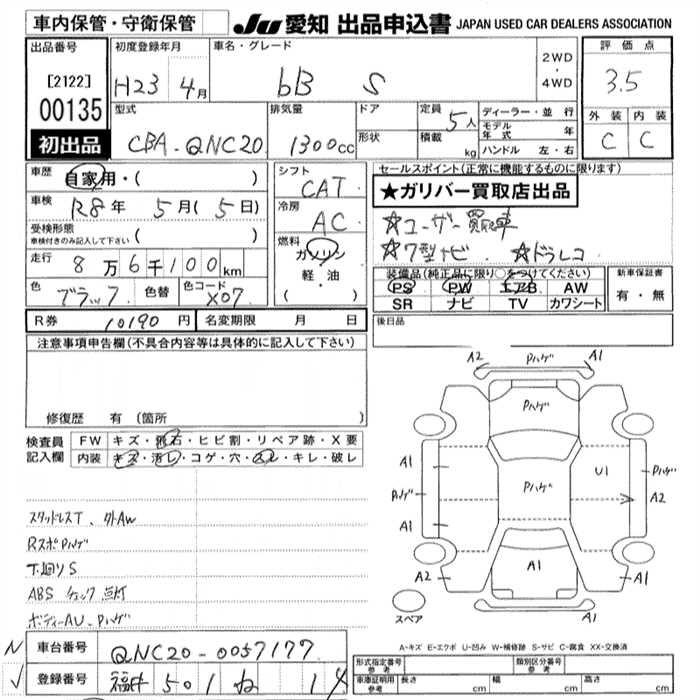 車内保管・守衛保管
JU 愛知 出品申込書 JAPAN USED CAR DEALERS ASSOCIATION
出品番号
[2122]
00135
初出品
初度登録年月
H23 4月
車名・グレード
bB S
2WD
・
4WD
評価点
3.5
外装 内装
C C
型式
CBA-QNC20
排気量
1300cc
ドア
形状
定員 5人
積載 kg
ディーラー・並行
モデル年式 年
ハンドル 左・右
車歴
自家用・( )
車検
R8年 5月(5日)
受検形態
車検付きのみ記入して下さい ( )
走行
8万6千100km
色
ブラック
色替
色コード
X07
シフト
CAT
冷房
AC
燃料
ガソリン
軽・油
( )
セールスポイント(正常に機能するものに限ります)
★ガリバー買取店出品
☆ユーザー買取車
☆7型ナビ ☆ドラレコ
装備品(純正品に限り○をつけてください)
PS PW エアB AW
SR ナビ TV カワシート
新車保証書
有・無
後日品
R券 10190円
名変期限 月 日
注意事項申告欄(不具合内容等は具体的に記入して下さい)
修復歴 有 (箇所 )
検査員記入欄
FW キズ・飛石・ヒビ割・リペア跡・X要
内装 キズ・汚レ・コゲ・穴・スレ・キレ・破レ
スタッドレスT、外AW
RスポPハゲ
下廻りS
ABSチェック点灯
ボディーAU、Pハゲ
A2 Pハゲ A1
Pハゲ
A1 U1
Pハゲ Pハゲ Pハゲ
A2
A1
A1
A2 A1
スペア A1
A-キズ E-エクボ U-凹み W-補修跡 S-サビ C-腐食 XX-交換済
N 車台番号 QNC20-0057177
√ 登録番号 福井 501 ね 14
形式指定番号 参考
類別区分番号 参考
車庫証明用 参考
長さ cm 幅 cm 高さ cm